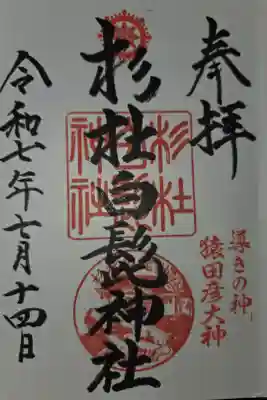 奉拝
導きの神
猿田彦大神
杉杜白髭神社
令和七年七月十四日